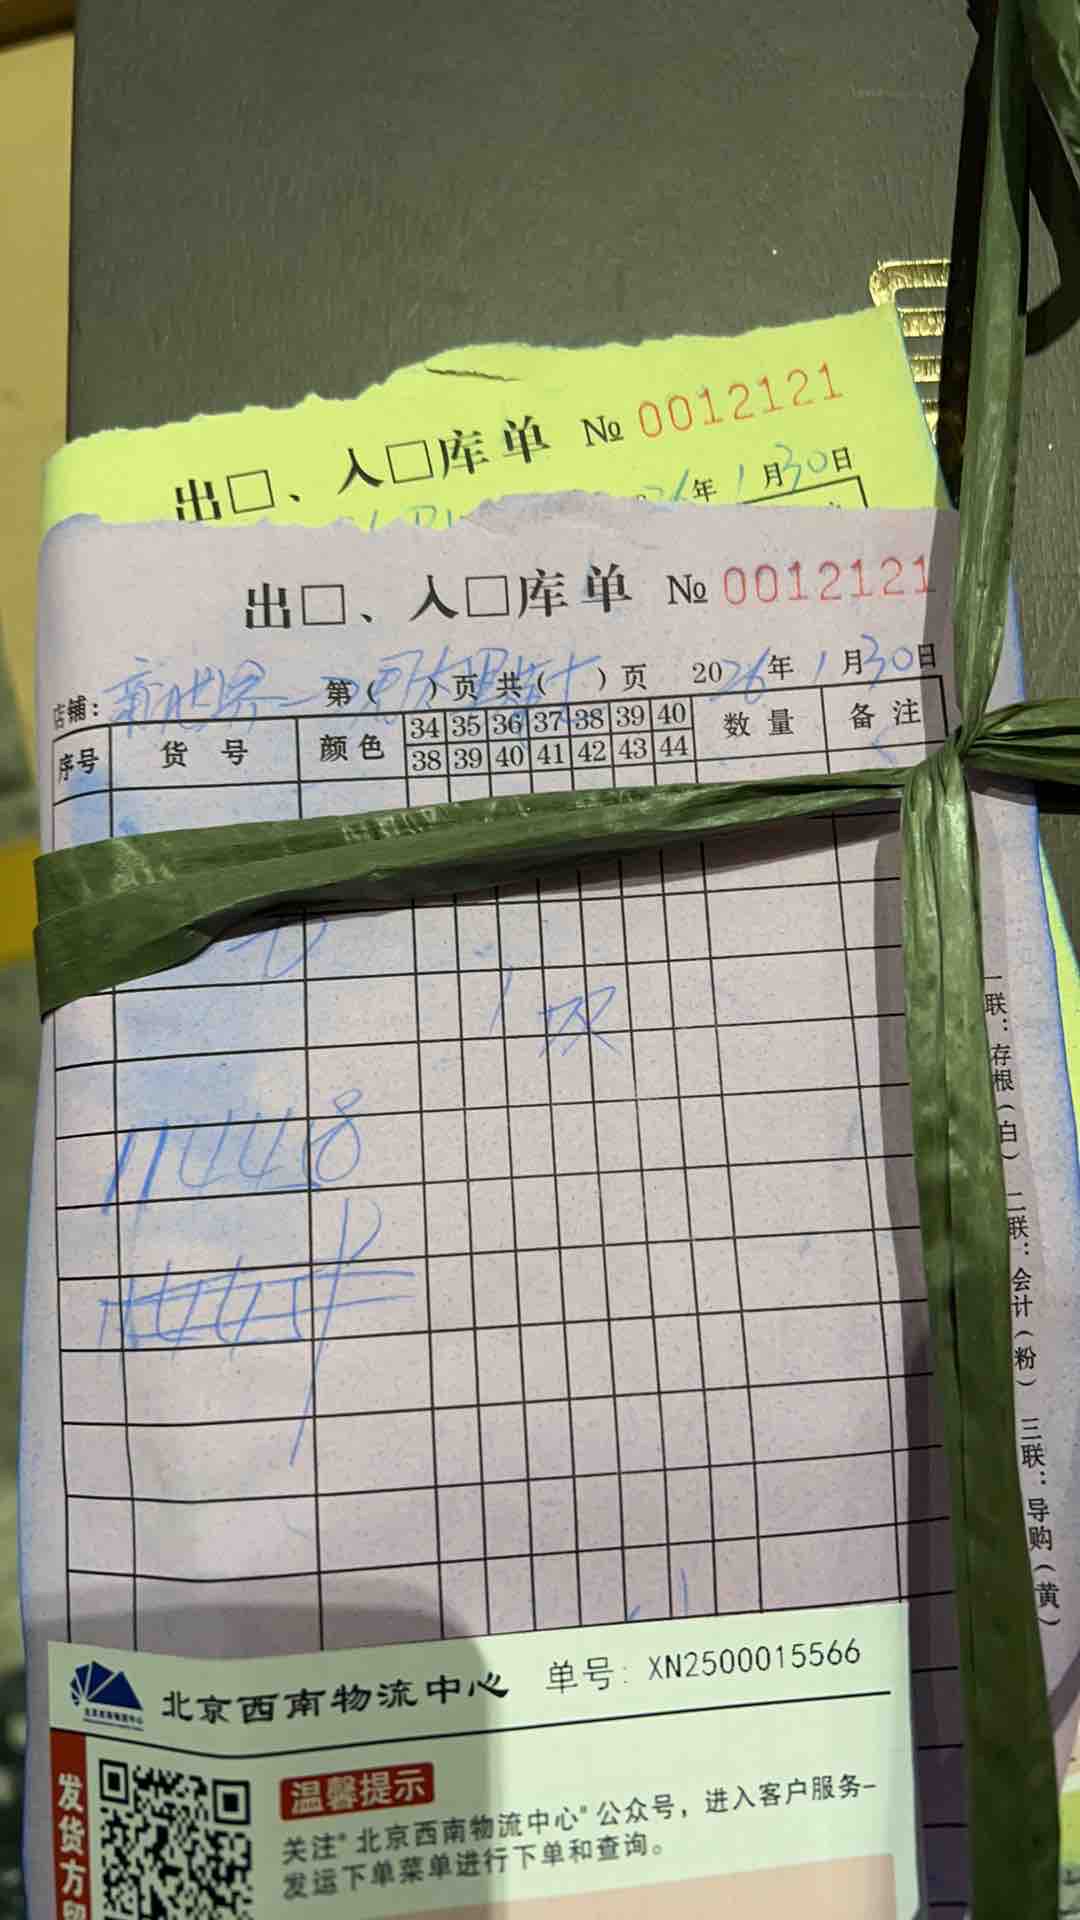 出□、入□库单 № 0012121
年 1月30日
出□、入□库单 № 0012121
店铺: 新世界 第( )页 共( )页 2026年 1月30日
序号 货号 颜色 34 35 36 37 38 39 40 数量 备注
38 39 40 41 42 43 44
1双
11448
一联:存根(白) 二联:会计(粉) 三联:导购(黄)
北京西南物流中心 单号: XN2500015566
发货方
温馨提示
关注"北京西南物流中心"公众号，进入客户服务-
发运下单菜单进行下单和查询。